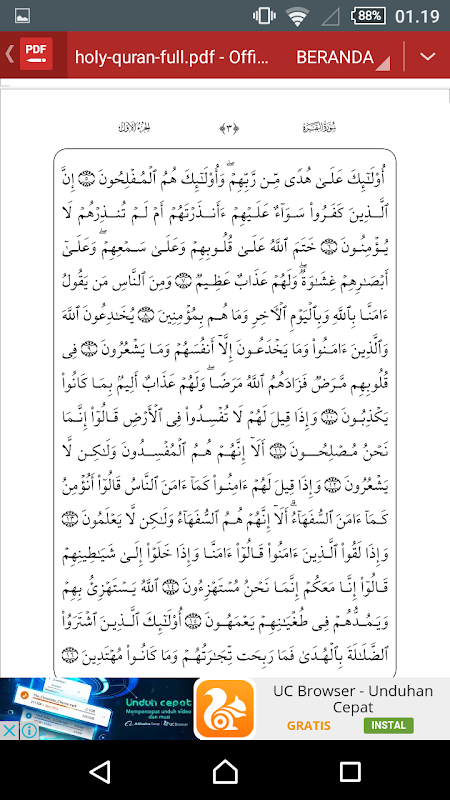 88% 01.19
PDF holy-quran-full.pdf - Offi... BERANDA
سُورَةُ البَقَرَةِ ﴿٣﴾ الجُزءُ الأوّل
أُو۟لَـٰٓئِكَ عَلَىٰ هُدًى مِّن رَّبِّهِمْ ۖ وَأُو۟لَـٰٓئِكَ هُمُ ٱلْمُفْلِحُونَ ۝٥ إِنَّ
ٱلَّذِينَ كَفَرُوا۟ سَوَآءٌ عَلَيْهِمْ ءَأَنذَرْتَهُمْ أَمْ لَمْ تُنذِرْهُمْ لَا
يُؤْمِنُونَ ۝٦ خَتَمَ ٱللَّهُ عَلَىٰ قُلُوبِهِمْ وَعَلَىٰ سَمْعِهِمْ ۖ وَعَلَىٰٓ
أَبْصَـٰرِهِمْ غِشَـٰوَةٌ ۖ وَلَهُمْ عَذَابٌ عَظِيمٌ ۝٧ وَمِنَ ٱلنَّاسِ مَن يَقُولُ
ءَامَنَّا بِٱللَّهِ وَبِٱلْيَوْمِ ٱلْـَٔاخِرِ وَمَا هُم بِمُؤْمِنِينَ ۝٨ يُخَـٰدِعُونَ ٱللَّهَ
وَٱلَّذِينَ ءَامَنُوا۟ وَمَا يَخْدَعُونَ إِلَّآ أَنفُسَهُمْ وَمَا يَشْعُرُونَ ۝٩ فِى
قُلُوبِهِم مَّرَضٌ فَزَادَهُمُ ٱللَّهُ مَرَضًا ۖ وَلَهُمْ عَذَابٌ أَلِيمٌۢ بِمَا كَانُوا۟
يَكْذِبُونَ ۝١٠ وَإِذَا قِيلَ لَهُمْ لَا تُفْسِدُوا۟ فِى ٱلْأَرْضِ قَالُوٓا۟ إِنَّمَا
نَحْنُ مُصْلِحُونَ ۝١١ أَلَآ إِنَّهُمْ هُمُ ٱلْمُفْسِدُونَ وَلَـٰكِن لَّا
يَشْعُرُونَ ۝١٢ وَإِذَا قِيلَ لَهُمْ ءَامِنُوا۟ كَمَآ ءَامَنَ ٱلنَّاسُ قَالُوٓا۟ أَنُؤْمِنُ
كَمَآ ءَامَنَ ٱلسُّفَهَآءُ ۗ أَلَآ إِنَّهُمْ هُمُ ٱلسُّفَهَآءُ وَلَـٰكِن لَّا يَعْلَمُونَ ۝١٣
وَإِذَا لَقُوا۟ ٱلَّذِينَ ءَامَنُوا۟ قَالُوٓا۟ ءَامَنَّا وَإِذَا خَلَوْا۟ إِلَىٰ شَيَـٰطِينِهِمْ
قَالُوٓا۟ إِنَّا مَعَكُمْ إِنَّمَا نَحْنُ مُسْتَهْزِءُونَ ۝١٤ ٱللَّهُ يَسْتَهْزِئُ بِهِمْ
وَيَمُدُّهُمْ فِى طُغْيَـٰنِهِمْ يَعْمَهُونَ ۝١٥ أُو۟لَـٰٓئِكَ ٱلَّذِينَ ٱشْتَرَوُا۟
ٱلضَّلَـٰلَةَ بِٱلْهُدَىٰ فَمَا رَبِحَت تِّجَـٰرَتُهُمْ وَمَا كَانُوا۟ مُهْتَدِينَ ۝١٦
Unduh cepat
Mempercepat unduh video
dan musi
UC Browser - Unduhan
Cepat
GRATIS INSTAL